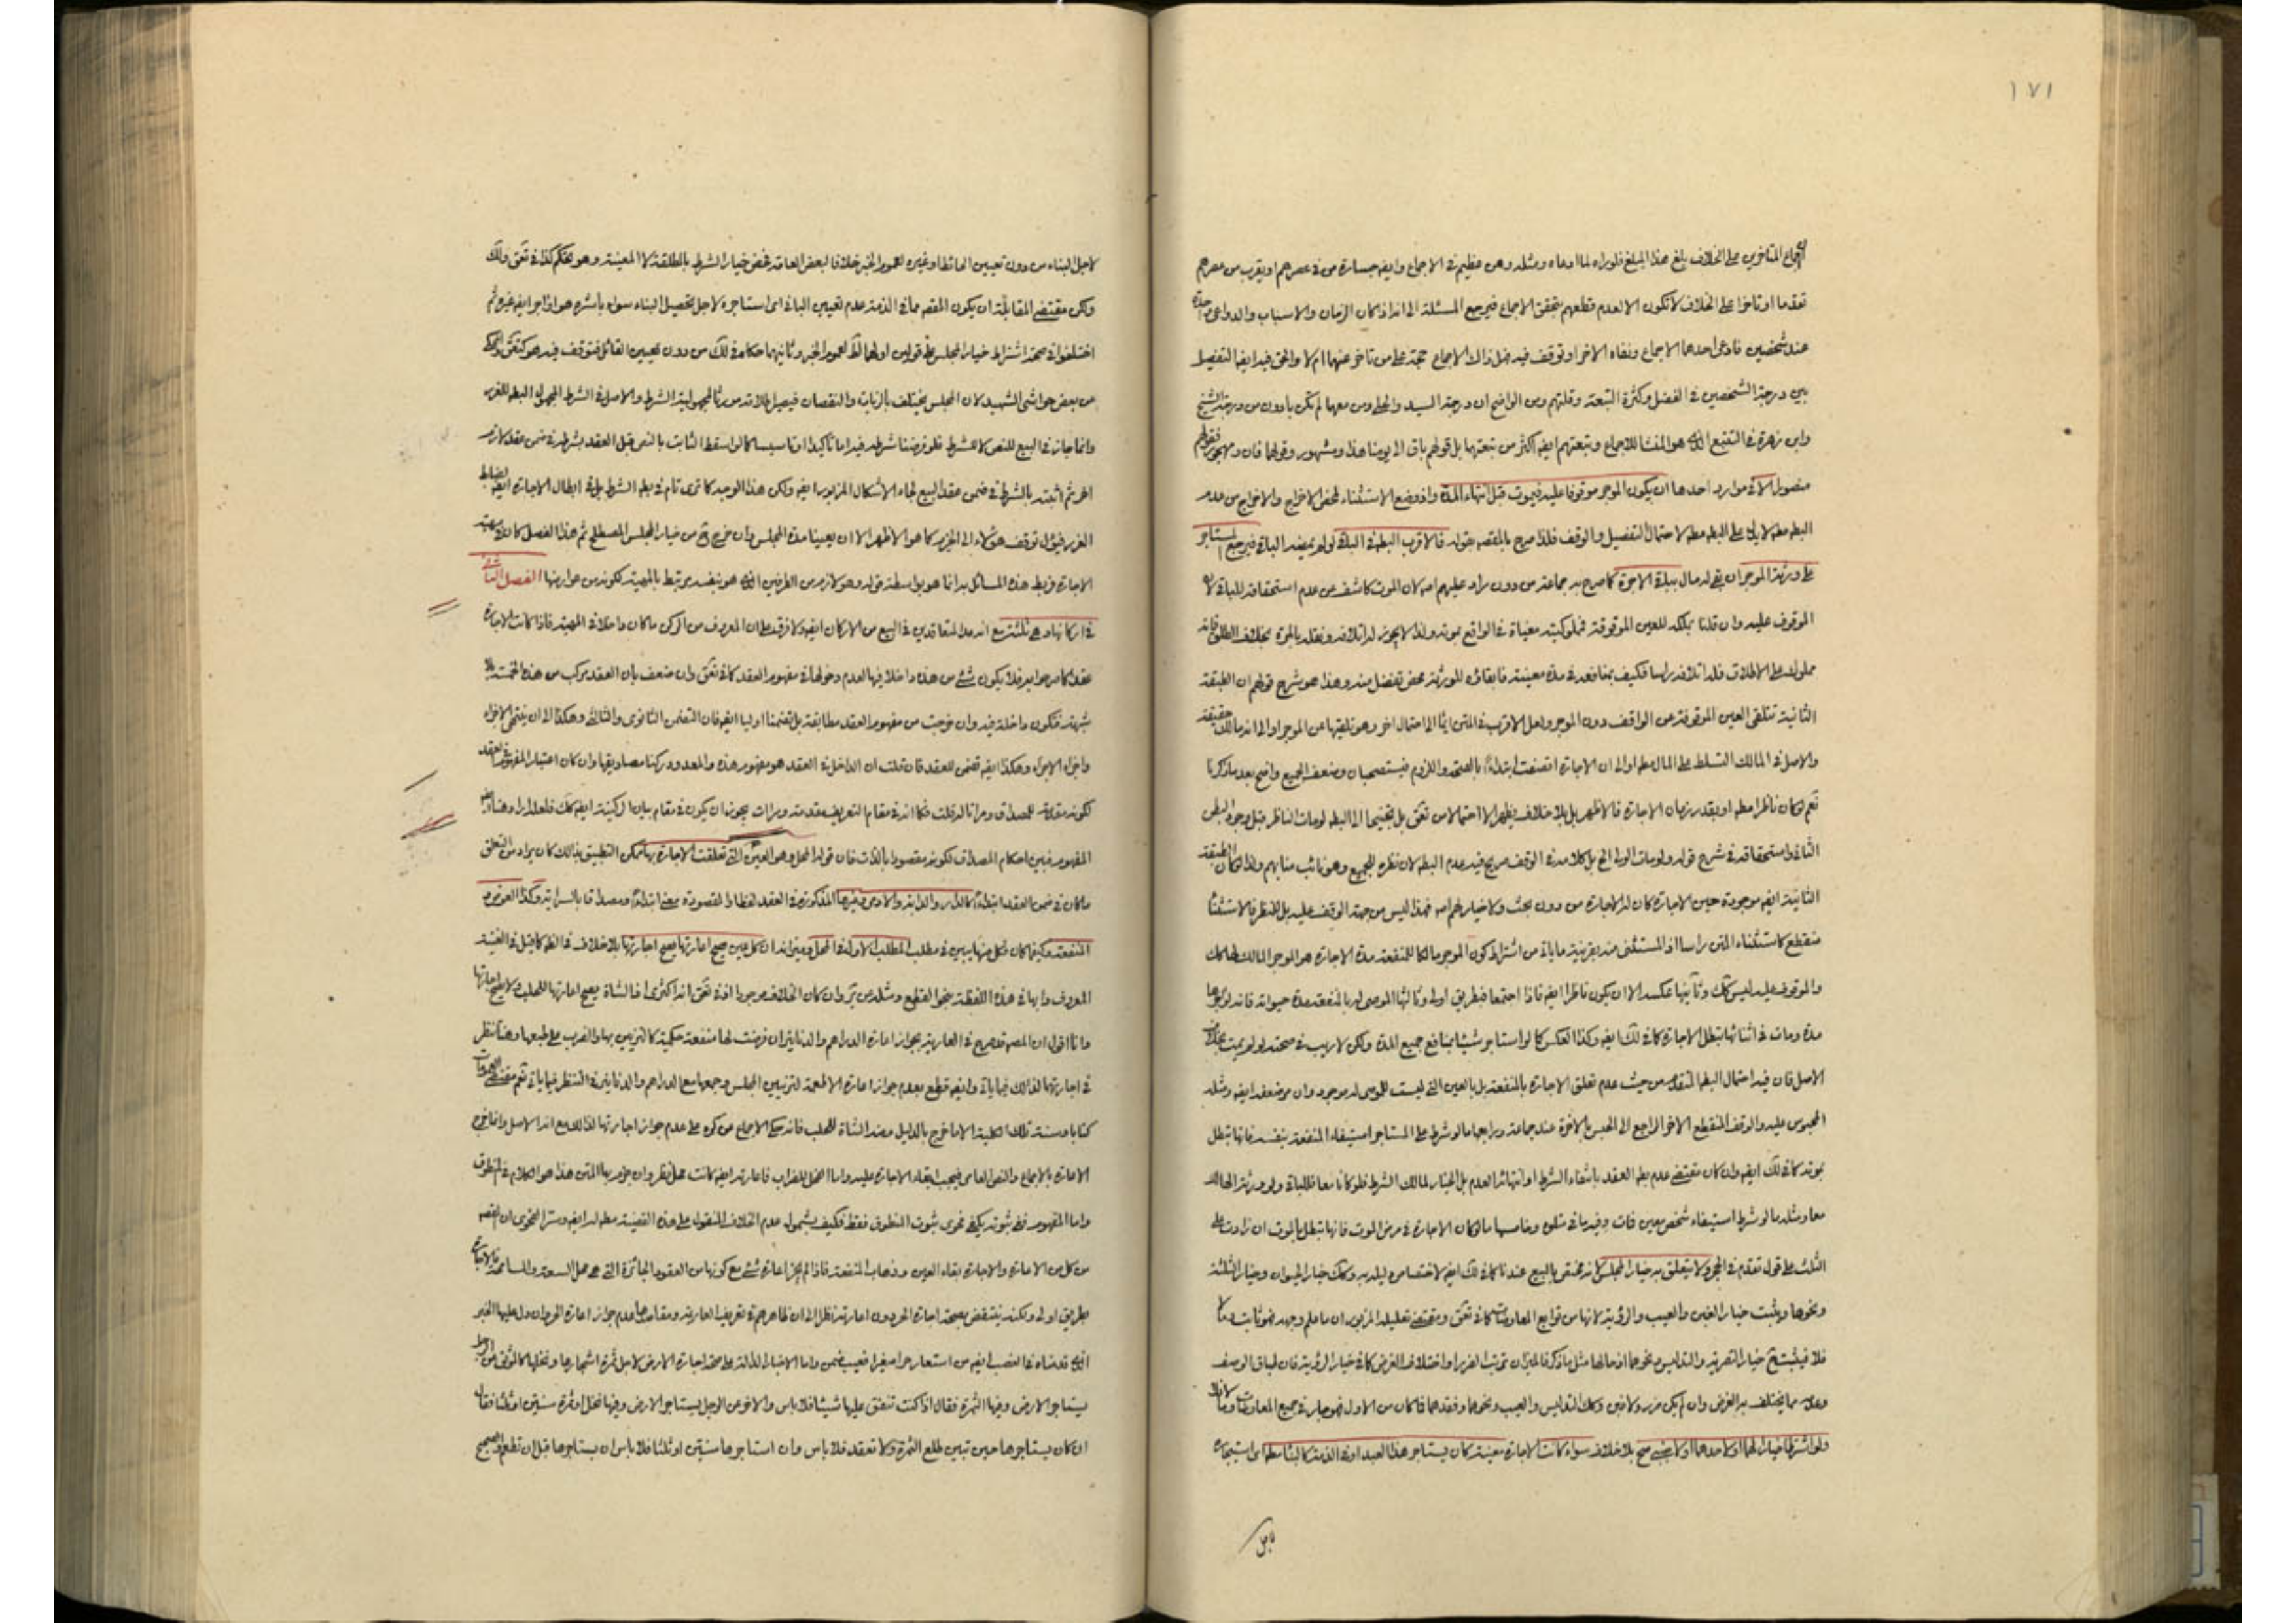 ١٧١
اجماع المتاخرين على الخلاف بلغ هذا المبلغ فلو راه لما ادعاه ومثله وهن عظيم في الاجماع وايضا جسارة من في عصرهم او يقرب من عصرهم
تقدما او تاخرا على الخلاف لا تكون الا لعدم قطعهم بتحقق الاجماع فيرجع المسئلة الى انه اذا كان الزمان والاسباب والدواعي
عند شخصين فادعى احدهما الاجماع ونفاه الاخر او توقف فيه فهل ذاك الاجماع حجة على من تاخر عنهما ام لا والحق فيه ايضا التفصيل
بين درجة الشخصين في الفضل وكثرة التبعة وقلتهم ومن الواضح ان درجة السيد والحلي ومن معهما لم تكن بادون من درجة الشيخ
وابن زهرة في التتبع الذي هو المنشا للاجماع وتبعتهم ايضا اكثر من تبعتهما بل قولهم باق الى يومنا هذا ومشهور وقولهما فان ومهجور
الا في موارد احدها ان يكون الموجر موقوفا عليه فيموت قبل انتهاء المدة واذ وضع الاستثناء لمحض الاخراج والاخراج من عدم
البطم لا يدل على البطم لاحتمال التفصيل والوقف فلذا صرح بالمقصه بقوله فالاقرب البطم في الباقي فيرجع المستاجر
على ورثة الموجر ان بقي له مال بباقي الاجرة كما صرح به جماعة من دون راد عليهم لان الموت كاشف عن عدم استحقاقه للباقي لان
الموقوف عليه وان قلنا بملكه للعين الموقوفة فملوكيته مغياة في الواقع بموته ولذا لا يجوز له اتلافه ونقله بالمرة بخلاف الطلق فانه
مملوك على الاطلاق فله اتلافه راسا فكيف بمنافعه في مدة معينة فابقائه للورثة محض تفضل منه وهذا هو شرح قولهم ان الطبقة
الثانية تتلقى العين الموقوفة من الواقف دون الموجر ولعل الاقرب في المتن ايما الى احتمال اخر وهو تلقيها عن الموجر او الى انه مالك حقيقة
والاصل في المالك التسلط على المال او الى ان الاجارة اتصفت ابتداء بالصحة واللزوم فيستصحبان وضعف الجميع واضح بعد ما ذكرنا
نعم لو كان ناظرا او بقدر زمان الاجارة فالاظهر بل بلا خلاف يظهر الا احتمالا من تعق
الثاني واستحقاقه في شرح قوله ولو مات الولي الخ بل كلامه في الوقف صريح فيه عدم البطم لان نظره للجميع وهو نائب منابهم ولذا لو كان الطبقة
الثانية ايضا موجودة حين الاجارة كان له الاجارة من دون بحث ولا خيار لهم فهذا ليس من جهة الوقف عليه بل للنظر فالاستثنا
منقطع كاستثناء المتن راسا اذ المستثنى منه بقرينة ما ياتي من اشتراط كون الموجر مالكا للمنفعة مدة الاجارة هو الموجر المالك
والموقوف عليه ليس كك وثانيها عكسه الا ان يكون ناظرا ايضا فاذا اجتمعا فبطريق اولى وثالثها الموصى له بالمنفعة مدة حيوته فانه لو اجرها
مدة ومات في اثنائها تبطل الاجارة كما في لك ايضا وكذا العكس كما لو استاجر شيئا بمنافع جميع المدة ولكن لا ريب في صحته لو لم يمت بخلاف
الاصل فان فيه احتمال البطم المتقدم من حيث عدم تعلق الاجارة بالمنفعة بل بالعين التي ليست للموصى له موجود وان مر ضعفه ايضا ومثله
المحبوس عليه والوقف المنقطع الاخر الراجع الى الحبس بالاخرة عند جماعة ورابعها ما لو شرط على المستاجر استيفاء المنفعة بنفسه فانها تبطل
بموته كما في لك ايضا وان كان مقتضى عدم بطم العقد بانتفاء الشرط
معا ومثله ما لو شرط استيفاء شخص معين فات وفيه ما في متلوه وخامسها ما لو كان الاجارة في مرض الموت فانها تبطل بالموت ان زادت على
الثلث على قول تقدم في الحجر ولا يتعلق به خيار المجلس لانه مختص بالبيع عندنا كما في لك ايضا لاختصاص دليله به وكك خيار الحيوان وخيار الثلثة
ونحوها ويثبت خيار الغبن والعيب والرؤية لانها من توابع المعاوضات كما في تعق ومقتضى تعليله المزبور ان ما علم وجهه
فلا فيثبت خيار التصرية والتدليس ونحوهما
وعدمه مما يختلف به الغرض وان لم يكن ضرر ولا غبن وكك التدليس والعيب ونحوهما وفقدهما فما كان من الاول فهو جار في جميع المعاوضات
ولو اشترطا خيارا لهما او لاحدهما او لاجنبي صح بلا خلاف سواء كانت الاجارة معينة كان يستاجر هذا العبد او في الذمة كالبناء
لاجل
لاجل البناء من دون تعيين الحائط او غيره لعموم الخبر خلافا لبعض العامة فخص خيار الشرط بالمطلقة لا المعينة وهو تحكم كذا في تعق ولك
ولكن مقتضى المقابلة ان يكون المقصه مما في الذمة عدم تعيين الباني اى استاجره لاجل تحصيل البناء سواء باشره هو او اجر ايضا غيره ثم
اختلفوا في صحة اشتراط خيار المجلس على قولين اولهما لك لعموم الخبر وثانيهما حكاه في لك من دون تعيين القائل فتوقف فيه هو كتعق
عن بعض حواشي الشهيد لان المجلس يختلف بالزيادة والنقصان فيصير لجهالة الشرط والاصل في الشرط المجهول البطم للغرر
وانما جاز في البيع للنص لا للشرط فلو فرضنا شرطه فيه اما تاكيدا او تاسيسا كما لو اسقط الثابت بالنص قبل العقد بشرطه في ضمن عقد لازم
اخر ثم اثبته بالشرط في ضمن عقد البيع لجاء الاشكال المزبور ايضا ولكن هذا الوجه كما ترى تام في بطم الشرط بل في ابطال الاجارة ايضا
الغرر فيؤل توقف هؤلاء الى الجزم كما هو الاظهر الا ان يعينا مدة المجلس وان خرج ح من خيار المجلس المصطلح ثم هذا الفصل كان
الاجارة فربط هذه المسائل به انما هو بواسطة قوله وهو لازم من الطرفين الذي هو بنفسه مرتبط بالمهية لكونه من عوارضها الفصل الثاني
في اركانها وهي ثلثة مع انه عد المتعاقدين في البيع من الاركان ايضا ولا فرق على ان المعروف من الركن ما كان داخلا في المهية فاذا كانت الاجارة
عقدا كما صرحوا به فلا يكون شئ من هذه داخلا فيها لعدم دخولها في مفهوم العقد كما في تعق وان ضعف بان العقد مركب من هذه الخمسة بلا
شبهة فتكون داخلة فيه وان خرجت من مفهوم العقد مطابقة بل تضمنا اوليا ايضا فان التضمن الثانوى والثالثى وهكذا الى ان ينتهى الاجزاء
واجزاء الاجزاء وهكذا ايضا تضمن للعقد فان قلت ان الداخل في العقد هو مفهوم هذه والمعدود ركنا مصاديقها وان كان اعتبار المفهوم في العقد
لكونه مقدمة للمصداق ومراتا له قلت فكما انه في مقام التعريف مقدمة ومرات يجوز ان يكون في مقام بيان الركنية ايضا كك فلعله اراد هنا
المفهوم فبين احكام المصداق لكونه مقصودا بالذات فان قوله المحل وهو العين التي تعلقت الاجارة بها يمكن التطبيق بذلك كان يراد من التعلق
ما كان في ضمن العقد ابتداء كالدار والدابة والادمى وغيرها المذكورة في العقد لفظا والمقصودة معنى ابتداء ومصداقا بالسراية وكذا العوض و
المنفعة وكيف كان فكل منها يبين في مطلب المطلب الاول في المحل وبين انه ان كل عين صح اعارتها صح اجارتها بلا خلاف في الظم كما قيل في الغنية
المعروف دابها في هذه اللفظة بنحو القطع ومثله من كره وان كان الخلاف موجودا اذ في تعق انه اكثرى اذ الشاة يصح اعارتها للحلب ولا يصح اجارتها
وانا اقول ان المصه قد صرح في العارية بجواز اعارة الدراهم والدنانير ان فرضت لها منفعة حكمية كالتزيين بها والضرب على طبعها وهنا نظر
في اجارتها لذلك فيما ياتي وايضا قطع بعدم جواز اعارة الاطعمة لتزيين المجلس وجمعها مع الدراهم والدنانير في النظر فيما ياتي نعم مقتضى العمومات
كتابا وسنة تلك الكلية الا ما خرج بالدليل ومنه الشاة للحلب فانه حكى الاجماع عن كره على عدم جواز اجارتها لذلك مع انه الاصل وانما خرج
الاعارة بالاجماع والنص العامي فيجب ابقاء الاجارة عليه واما الفحل للضراب فاعارته ايضا كانت محل نظر وان جزم بها المتن هذا هو الكلام في المنطوق
واما المفهوم ففي ثبوته يكفى فحوى ثبوت المنطوق فقط فكيف بشمول عدم الخلاف المنقول على هذه القضية له ايضا وسر الفحوى ان المقصه
من كل من الاعارة والاجارة بقاء العين وذهاب المنفعة فاذا لم يجز اعارة شئ مع كونها من العقود الجائزة التي هي محل السعة والمسامحة فالاجارة
بطريق اولى ولكنه ينتقض بصحة اجارة الحر دون اعارته نظرا الى ان ظاهرهم في تعريف العارية ومقامها عدم جواز اعارة الحر وان دل عليها الخبر
الذي قدمناه في الغصب ايضا من استعار حرا صغيرا فعيب ضمن واما الاخبار الدالة على صحة اجارة الارض لاجل ثمرة اشجارها ونخلها كالموثق عن الرجل
يستاجر الارض وفيها الثمرة فقال اذا كنت تنفق عليها شيئا فلا باس والاخر عن الرجل يستاجر الارض وفيها نخل او ثمرة سنتين او ثلثا فقال
ان كان يستاجرها حين تبين طلع الثمرة ولا تعقد فلا باس وان استاجرها سنتين او ثلثا فلا باس ان يستاجرها قبل ان تطعم والصحيح